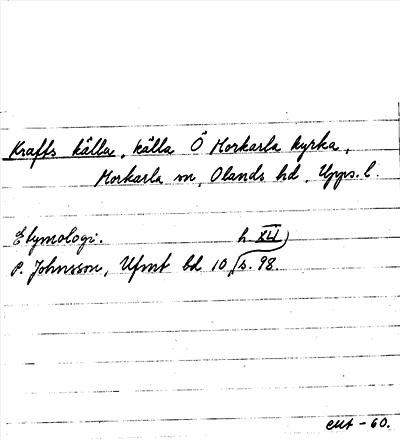 Kraffs källa, källa Ö Morkarla kyrka,
Morkarla sn, Olands hd, Upps. l.
Etymologi. h XLI
P. Johnsson, Ufmt bd 10, s. 98.
eut - 60.